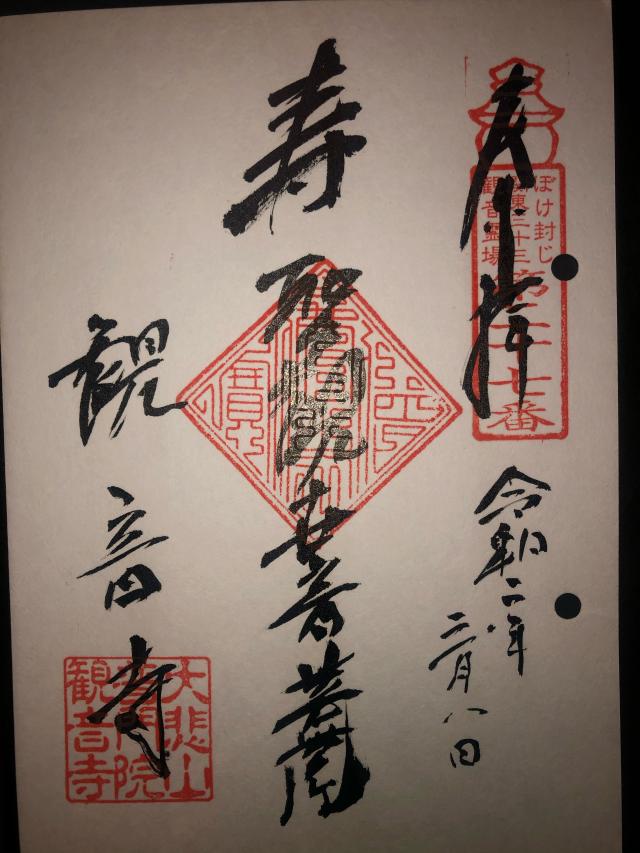 奉拝
ぼけ封じ
関東三十三
観音霊場
第二十七番
令和二年
二月八日
寿
聖観世音菩薩
観音寺
大悲山
普門院
観音寺